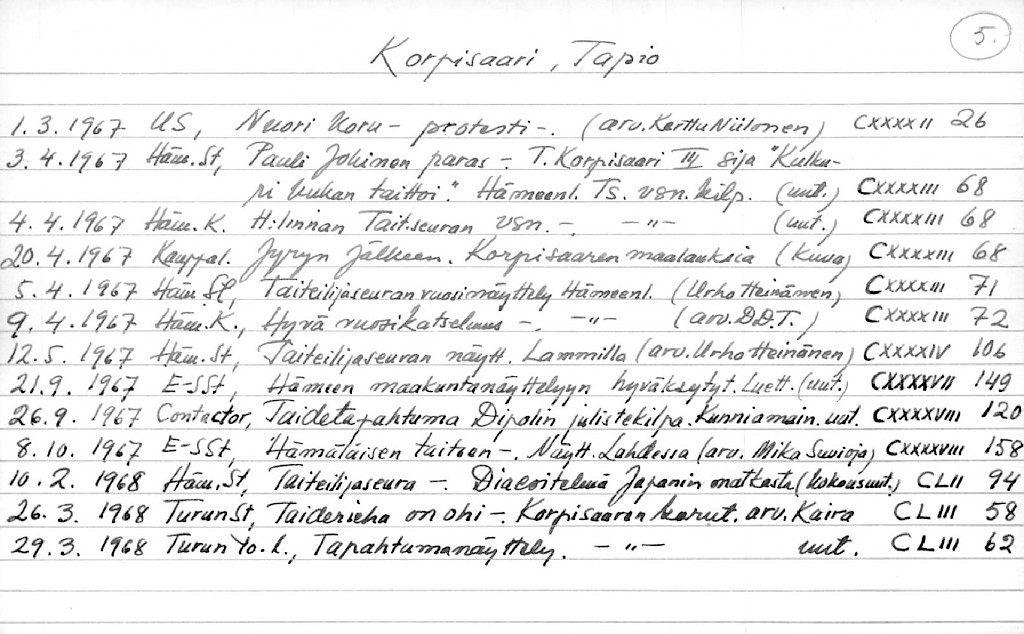 5.
Korpisaari, Tapio
1.3.1967 US, Nuori Koru - protesti -. (arv. Kerttu Niilonen) CXXXXII 26
3.4.1967 Häm.St, Pauli Jokinen paras -. T. Korpisaari III sija "Kulku-
ri kukan taittoi". Hämeenl. Ts. vsn. kilp. (uut.) CXXXXIII 68
4.4.1967 Häm.K. H:linnan Tait.seuran vsn. -. - " - (uut.) CXXXXIII 68
20.4.1967 Kauppal. Jyryn jälkeen. Korpisaaren maalauksia (kuva) CXXXXIII 68
5.4.1967 Häm.St, Taiteilijaseuran vuosinäyttely Hämeenl. (Urho Heinänen) CXXXXIII 71
9.4.1967 Häm.K., Hyvä vuosikatselmus -. - " - (arv. D.D.T.) CXXXXIII 72
12.5.1967 Häm.St, Taiteilijaseuran näytt. Lammilla (arv. Urho Heinänen) CXXXXIV 106
21.9.1967 E-SSt, Hämeen maakuntanäyttelyyn hyväksytyt. Luett. (uut.) CXXXXVII 149
26.9.1967 Contactor, Taidetapahtuma Dipolin julistekilpa. Kunniamain. uut. CXXXXVIII 120
8.10.1967 E-SSt, Hämäläisen taiteen -. Näytt. Lahdessa (arv. Mika Suvioja) CXXXXVIII 158
10.2.1968 Häm.St, Taiteilijaseura -. Diaesitelmä Japanin matkasta (kokousuut.) CLII 94
26.3.1968 Turun St, Taiderieha on ohi -. Korpisaaren karut. arv. Kaira CLIII 58
29.3.1968 Turun Yo.l., Tapahtumanäyttely. - " - uut. CLIII 62